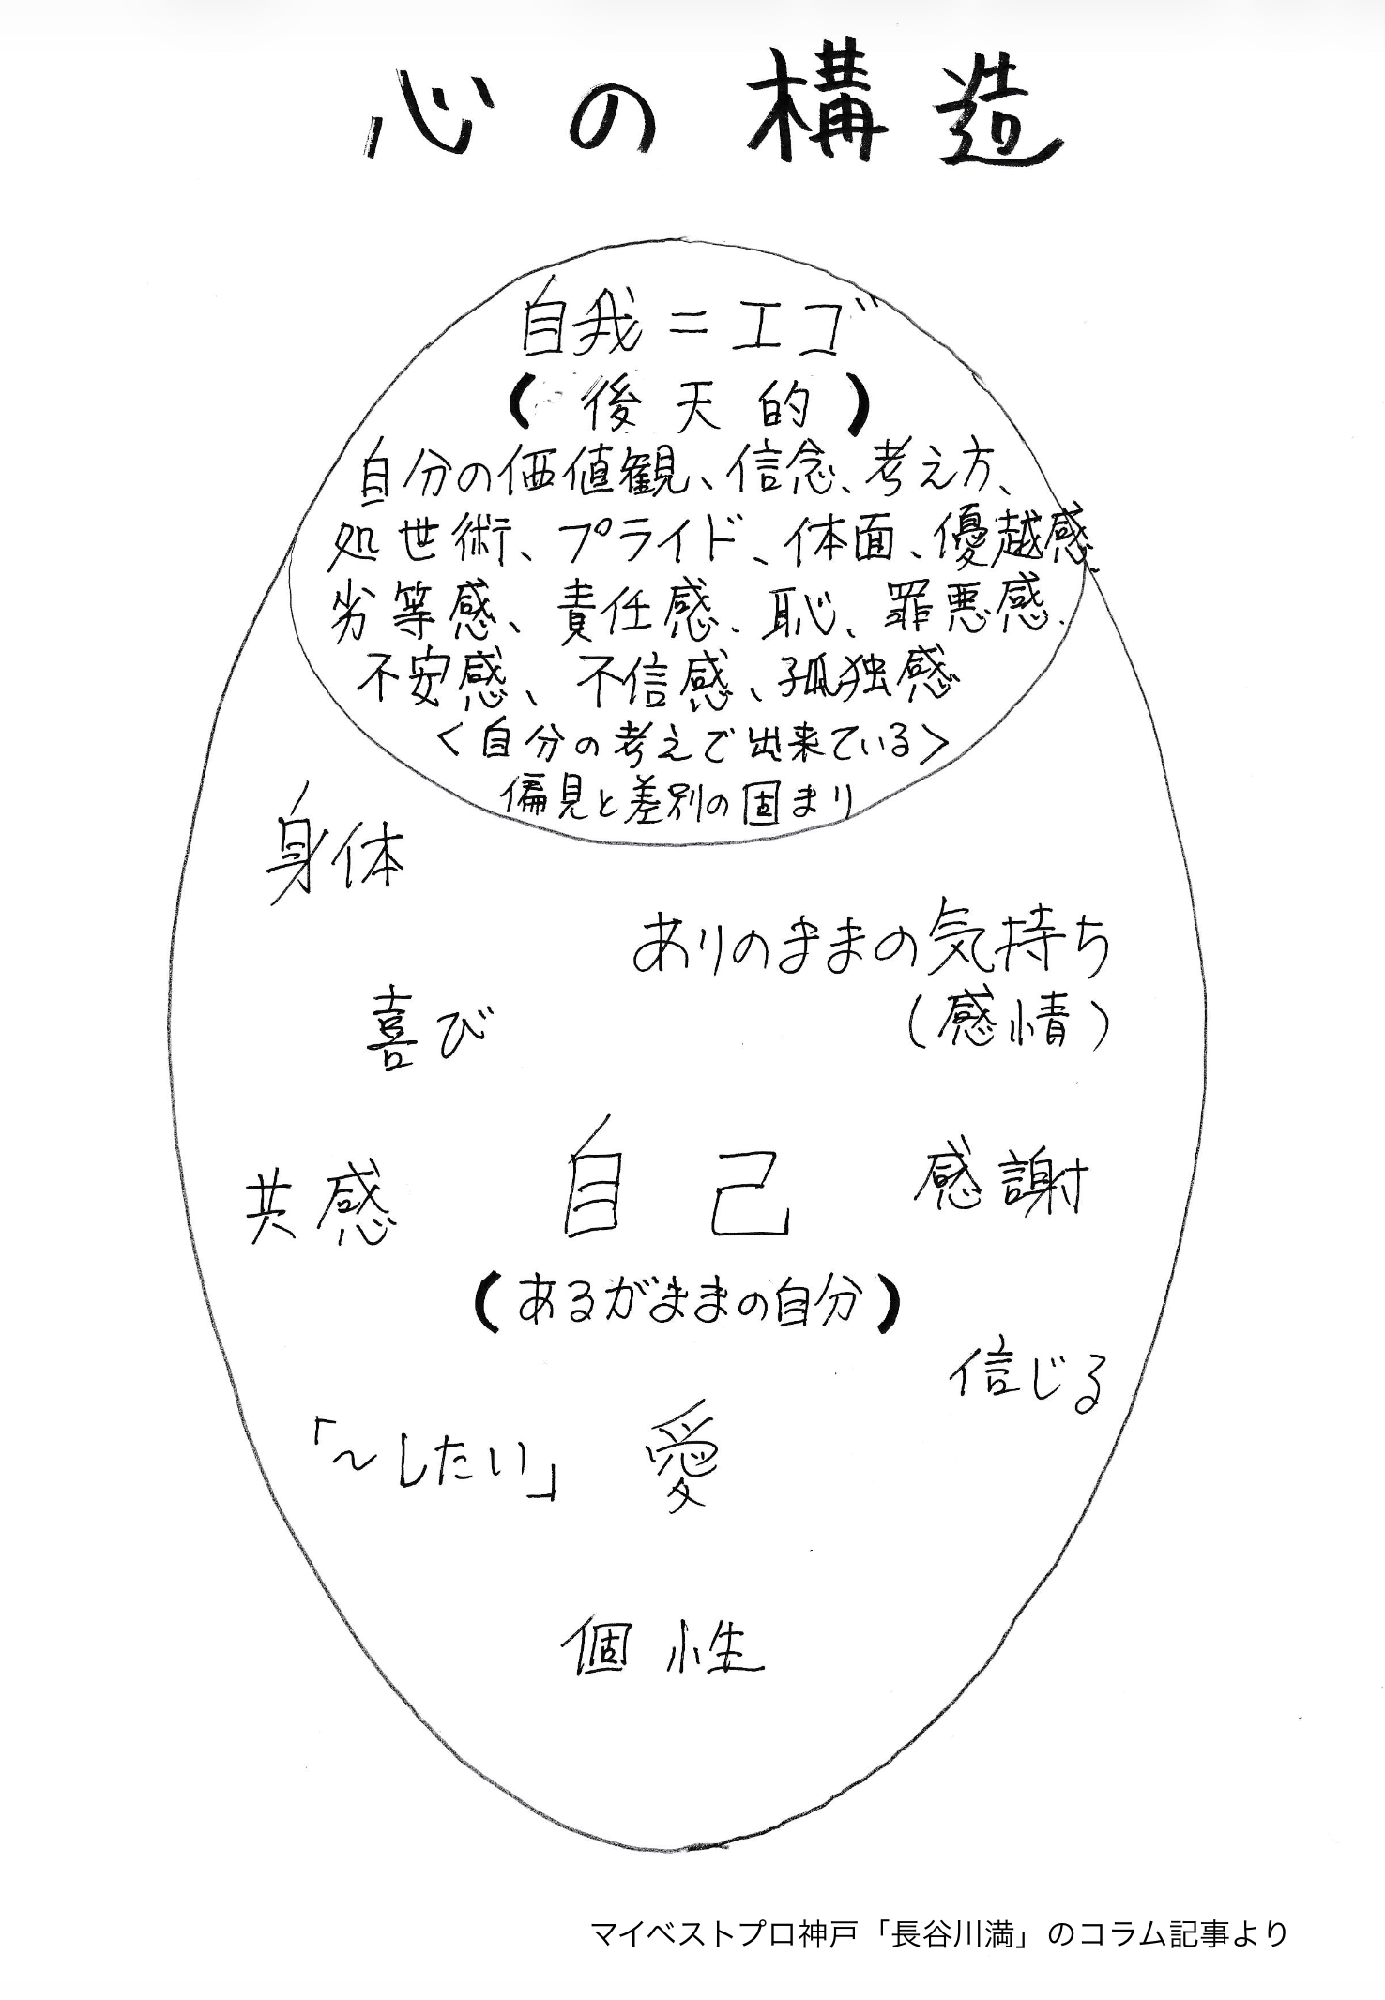 心の構造
自我=エゴ
(後天的)
自分の価値観、信念、考え方、
処世術、プライド、体面、優越感、
劣等感、責任感、恥、罪悪感、
不安感、不信感、孤独感
<自分の考えで出来ている>
偏見と差別の固まり
身体
ありのままの気持ち
(感情)
喜び
共感
自己
感謝
(あるがままの自分)
信じる
「〜したい」
愛
個性
マイベストプロ神戸「長谷川満」のコラム記事より